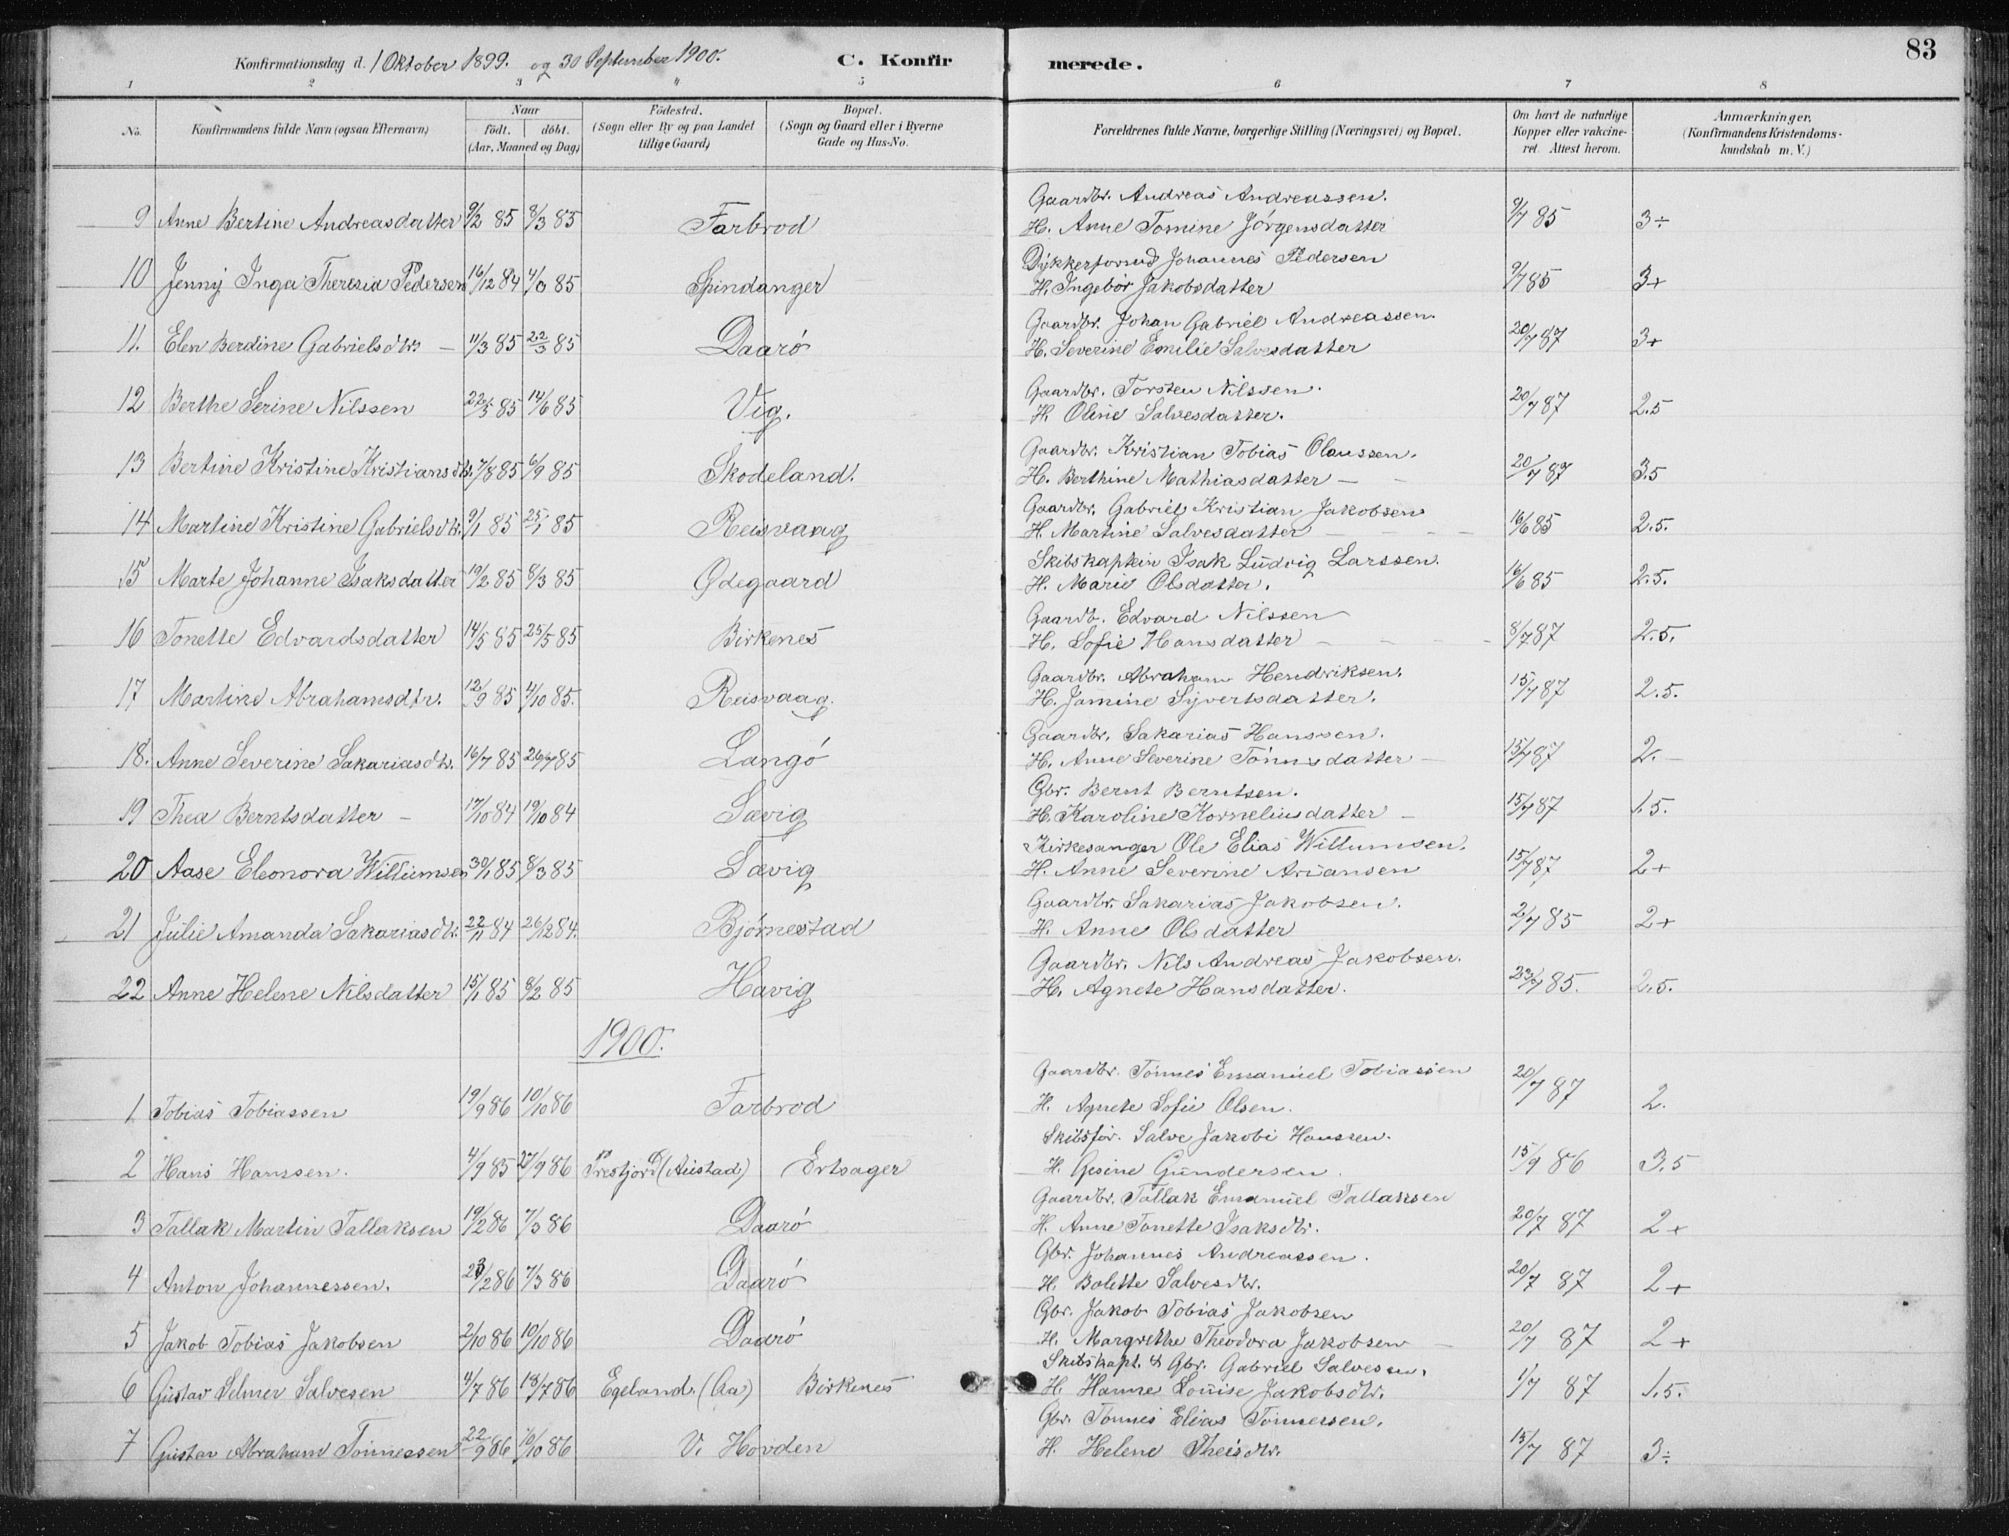 Konfirmationsdag d. 1 Oktober 1899. og 30 September 1900. C. Konfir merede. 83
1 2 3 4 5 6 7 8
No. Konfirmandens fulde Navn (ogsaa Efternavn) Naar födt. döbt. (Aar, Maaned og Dag) Födested. (Sogn eller By og paa Landet tillige Gaard) Bopæl. (Sogn og Gaard eller i Byerne Gade og Hus-No. Forældrenes fulde Navne, borgerlige Stilling (Næringsvei) og Bopæl. Om havt de naturlige Kopper eller vakcineret. Attest herom. Anmærkninger. (Konfirmandens Kristendomskundskab m. V.)
Gaardbr. Andreas Andreassen.
9 Anne Bertine Andreasdatter 9/2 85 8/3 85 Farbrod H. Anne Tomine Jörgensdatter 9/7 85 3÷
Dykkerformd Johannes Pedersen
10 Jenny Inga Theresia Pedersen 16/12 84 4/3 85 Spindanger H. Ingebor Jakobsdatter 9/7 85 3+
Gaardbr. Johan Gabriel Andreassen.
11. Elen Berdine Gabrielsdtr. 11/3 85 22/3 85 Daarö H. Severine Emilie Salvesdatter 20/7 87 3+
Gaardbr. Torsten Nilssen.
12 Berthe Serine Nilssen 22/5 85 14/6 85 Vig. H. Oline Salvesdatter. 20/7 87 2.5
Gaardbr. Kristian Tobias Olaussen.
13 Bertine Kristine Kristiansdtr. 7/8 85 6/9 85 Skodeland. H. Berthine Mathiasdatter 20/7 87 3.5
Gaardbr. Gabriel Kristian Jakobsen
14 Martine Kristine Gabrielsdtr. 9/1 85 25/1 85 Reisvaag H. Martine Salvesdatter 16/6 85 2.5.
Skibskaptein Isak Ludvig Larssen.
15 Marte Johanne Isaksdatter 19/2 85 8/3 85 Ødegaard H. Marie Olsdatter. 16/6 85 2.5.
Gaardb. Edvard Nilssen
16 Tonette Edvardsdatter 14/5 85 25/5 85 Birkenes H. Sofie Hansdatter 8/7 87 2.5.
Gaardbr. Abraham Hendriksen.
17 Martine Abrahamsdtr. 12/9 85 4/10 85. Reisvaag. H. Jamine Syvertsdatter. 15/7 87 2.5.
Gaardbr. Sakarias Hanssen.
18. Anne Severine Sakariasdtr. 16/7 85 26/7 85 Langö H. Anne Severine Tönnesdatter 15/7 87 2.
Gbr. Bernt Berntsen.
19 Thea Berntsdatter 17/10 84 19/10 84 Sævig H. Karoline Korneliusdatter 15/7 87 1.5.
Kirkesanger Ole Elias Willumsen.
20 Aase Eleonora Willumsen 30/1 85 8/3 85 Sævig H. Anne Severine Ariansen 15/7 87 2+
Gaardbr. Sakarias Jakobsen.
21 Julie Amanda Sakariasdtr. 22/11 84 26/12 84. Bjørnestad H. Anne Olsdatter 2/7 85 2+
Gaardbr. Nils Andreas Jakobsen.
22 Anne Helene Nilsdatter 15/1 85 8/2 85 Havig H. Agnete Hansdatter. 23/7 85. 2.5.
1900.
Gaardbr. Tönnes Emanuel Tobiassen
1 Tobias Tobiassen 19/9 86 10/10 86 Farbrod H. Agnete Sofie Olsen. 20/7 87 2.
Skibsför. Salve Jakobi Hanssen.
2 Hans Hanssen. 4/9 85 27/9 86 Tresfjord (Austad) Ertsager H. Gesine Gundersen 15/9 86 3.5
Gaardbr. Tallak Emanuel Tallaksen
3 Tallak Martin Tallaksen 19/2 86 7/3 86 Daarö H. Anne Tonette Isaksdtr. 20/7 87 2+
Gbr. Johannes Andreassen.
4 Anton Johannessen. 23/2 86 7/3 86 Daarö H. Bolette Salvesdtr. 20/7 87 2+
Gbr. Jakob Tobias Jakobsen
5 Jakob Tobias Jakobsen 2/10 86 10/10 86 Daarö H. Margrethe Theodora Jakobsen 20/7 87 2+
Skibskapt. & Gbr. Gabriel Salvesen.
6 Gustav Selmer Salvesen 4/7 86 18/7 86 Egeland (Aa) Birkenes H. Hanne Louise Jakobsdtr. 1/7 87 1.5.
Gbr. Tönnes Elias Tönnessen.
7 Gustav Abraham Tönnessen 22/9 86 10/10 86 V. Hovden H. Helene Theisdtr. 15/7 87 3÷